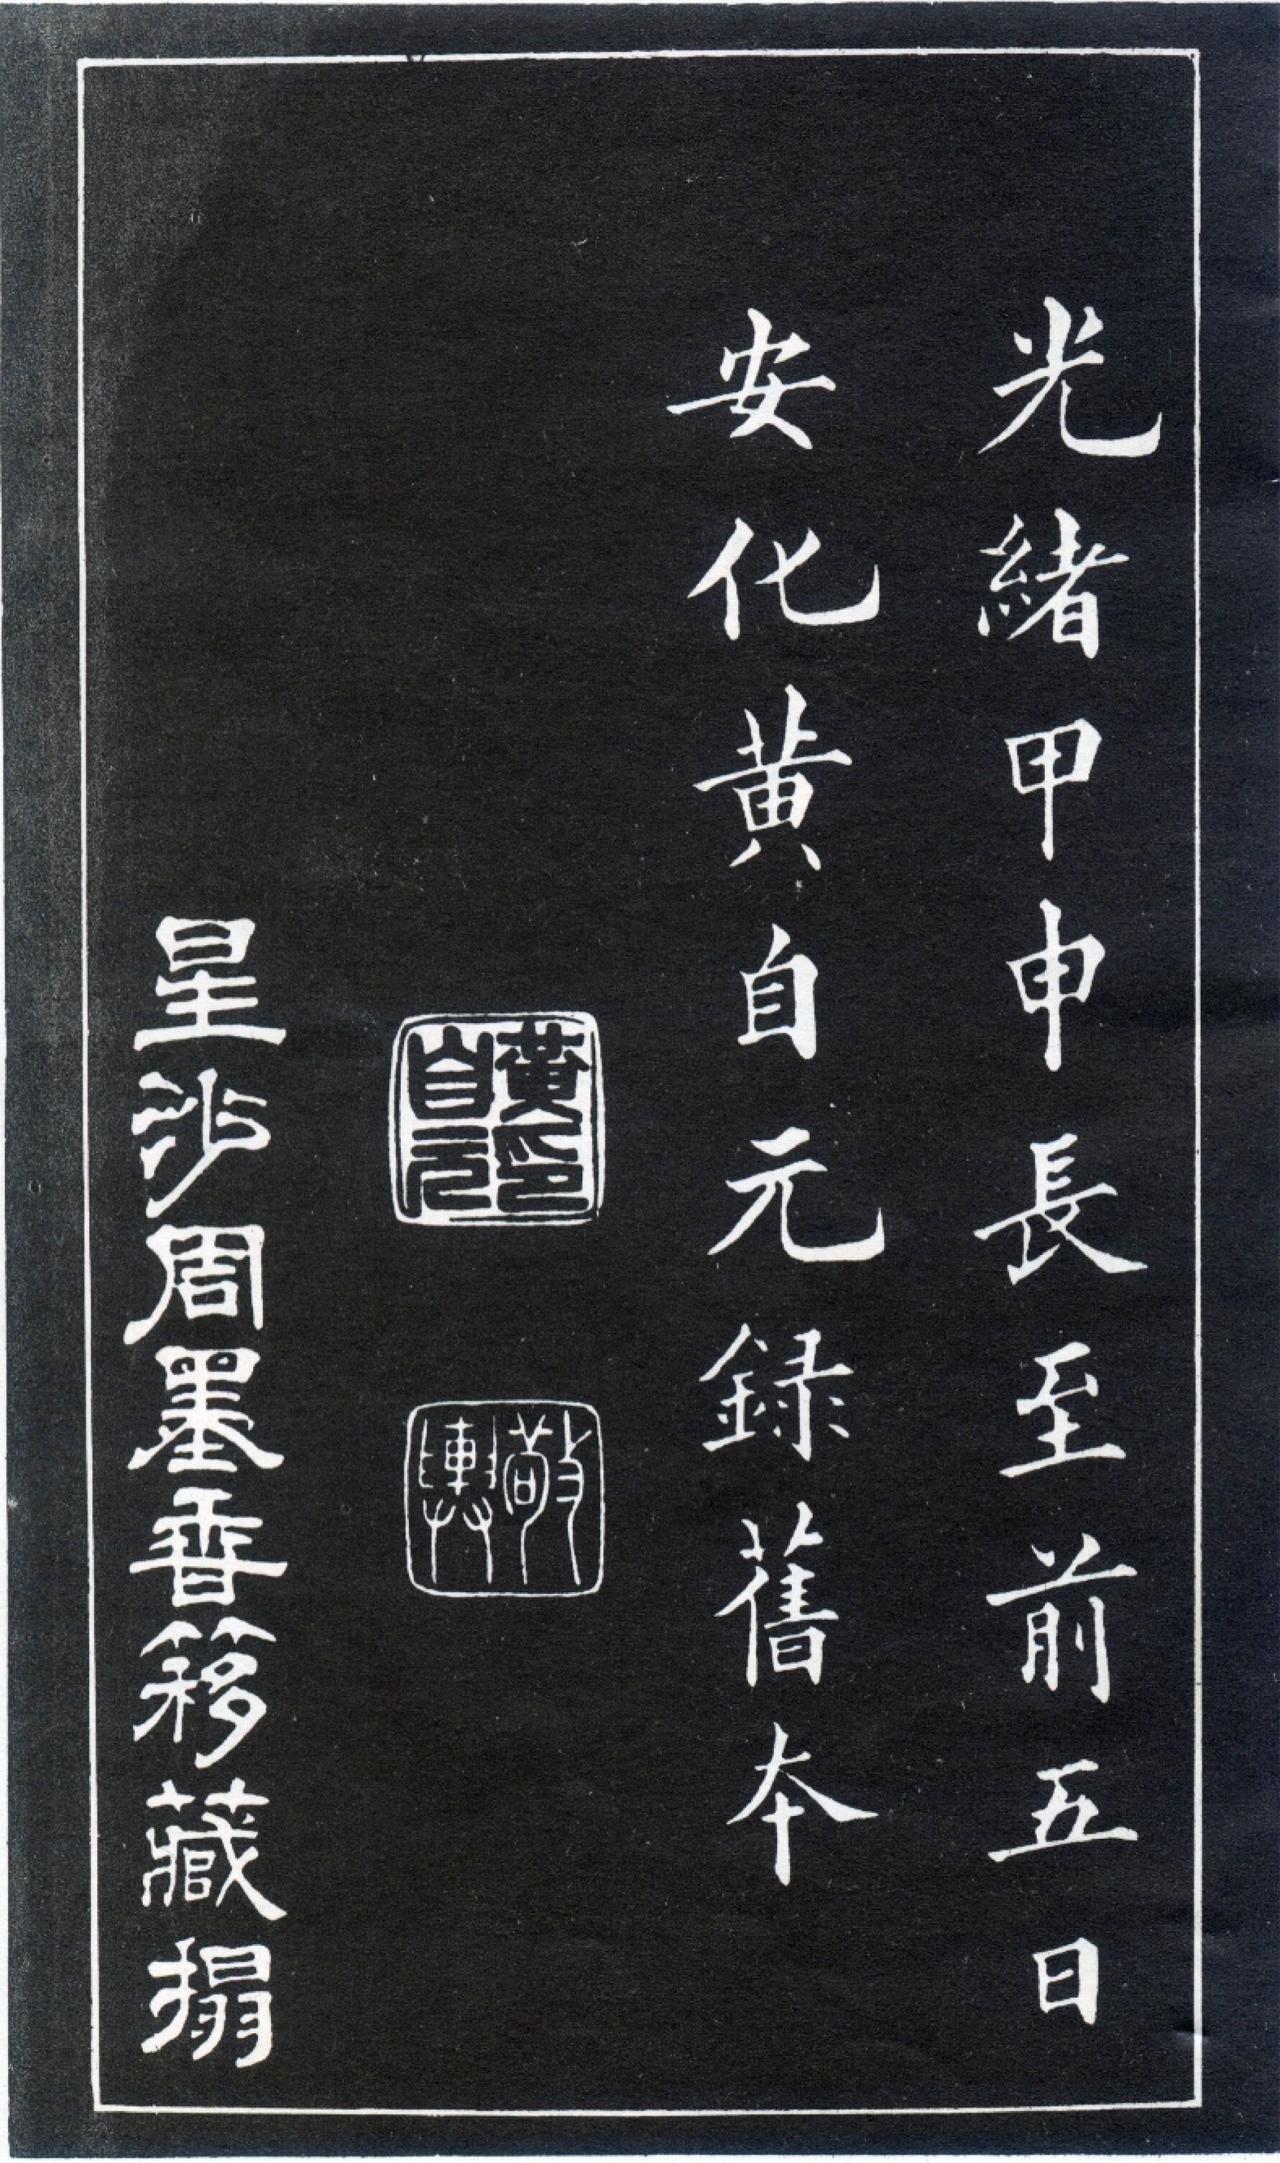 光緒甲申長至前五日
安化黄自元録舊本
黃印自元
敬輿
星沙周墨香簃藏搨